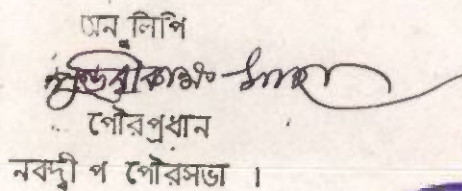 অনুলিপি
পৌরপ্রধান
নবদ্বীপ পৌরসভা ।